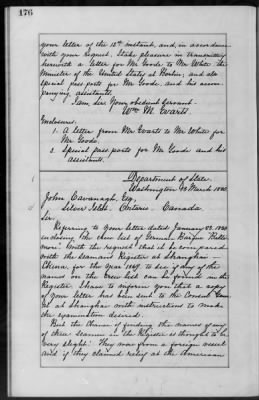 176
your letter of the 18th instant, and, in accordance
with your request, I take pleasure in transmitting
herewith a letter for Mr. Goode to Mr. White the
Minister of the United States at Berlin, and also
special passports for Mr. Goode, and his accom-
panying assistants.
I am, Sir, Your obedient Servant.
Wm. M. Evarts.
Enclosures.
1. A letter from Mr. Evarts to Mr. White for
Mr. Goode.
2. Special passports for Mr. Goode and his
assistants.
Department of State.
Washington March 1880.
John Cavanagh, Esq.
Silver Islet. Ontario. Canada
Sir.
Referring to your letter dated January 23, 1880
enclosing the crew list of German Barque
with the request that it be compared
with the Seaman's Register at Shanghai—
China, for the Year 1869, to see if any of the
names on the crew list can be found in the
Register. I have to inform you that a copy
of your letter has been sent to the Consul Gene-
ral at Shanghai with instructions to make
the examination desired.
But the chance of finding the names of any
of these seamen in the Register is thought to be
very slight. They were from a foreign vessel
and if they claimed relief at the American